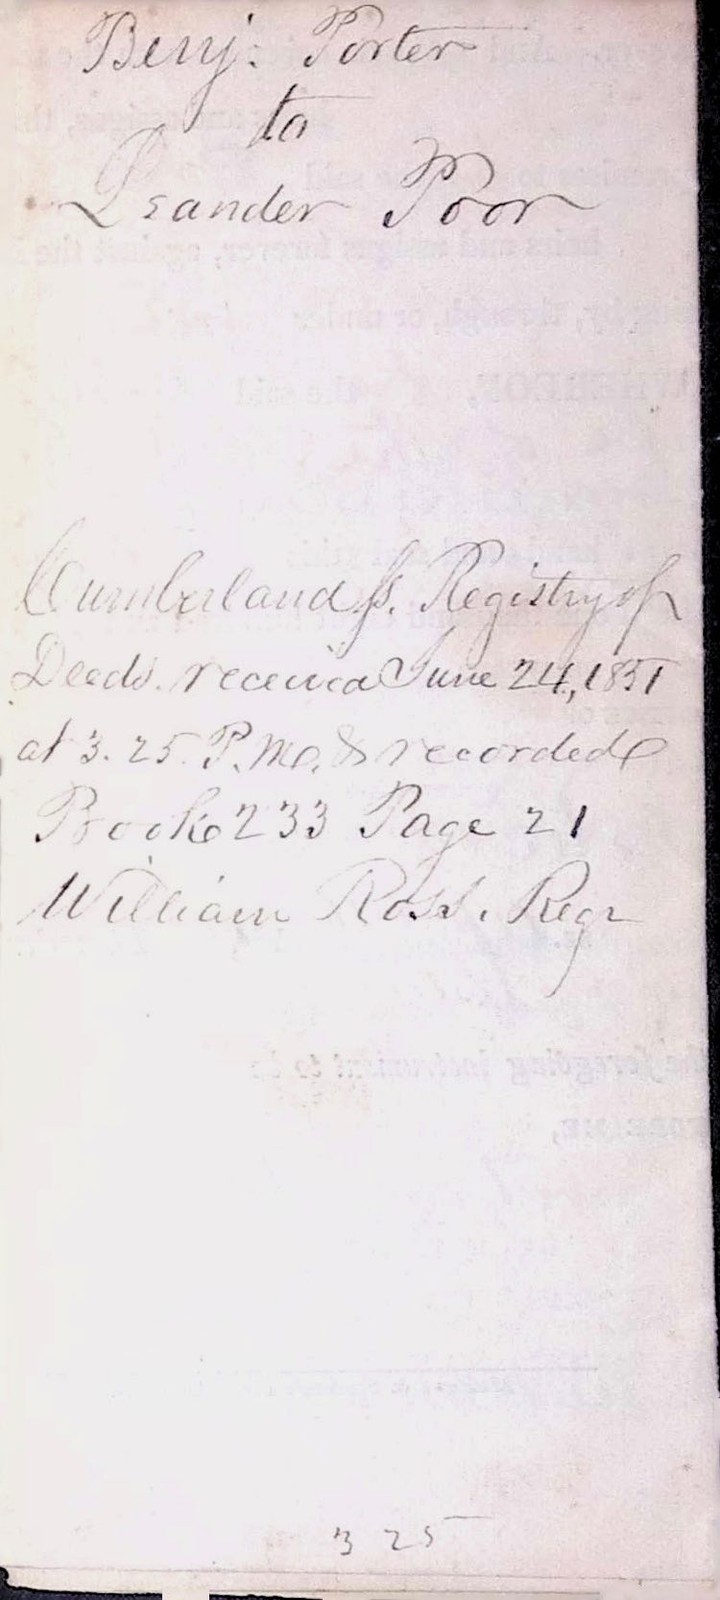 Benj. Porter
to
Leander Poor
Cumberland ss. Registry of
Deeds. received June 24, 1851
at 3.25 P.M. & recorded
Book 233 Page 21
William Ross. Regr
3 25